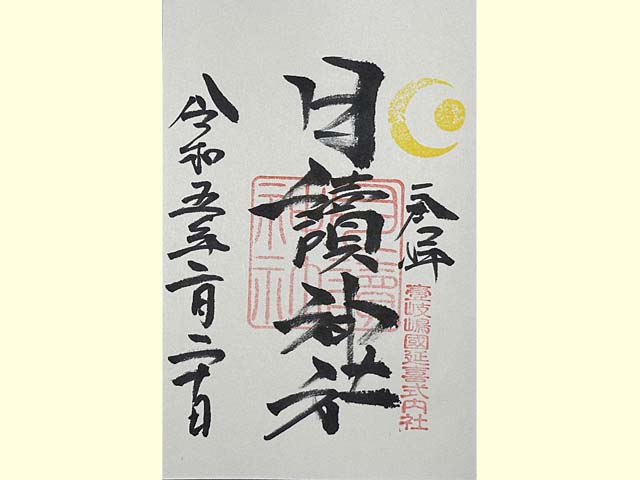 奉拝
壹岐嶋國延喜式内社
月讀神社
月讀
神社
令和五年二月二十日